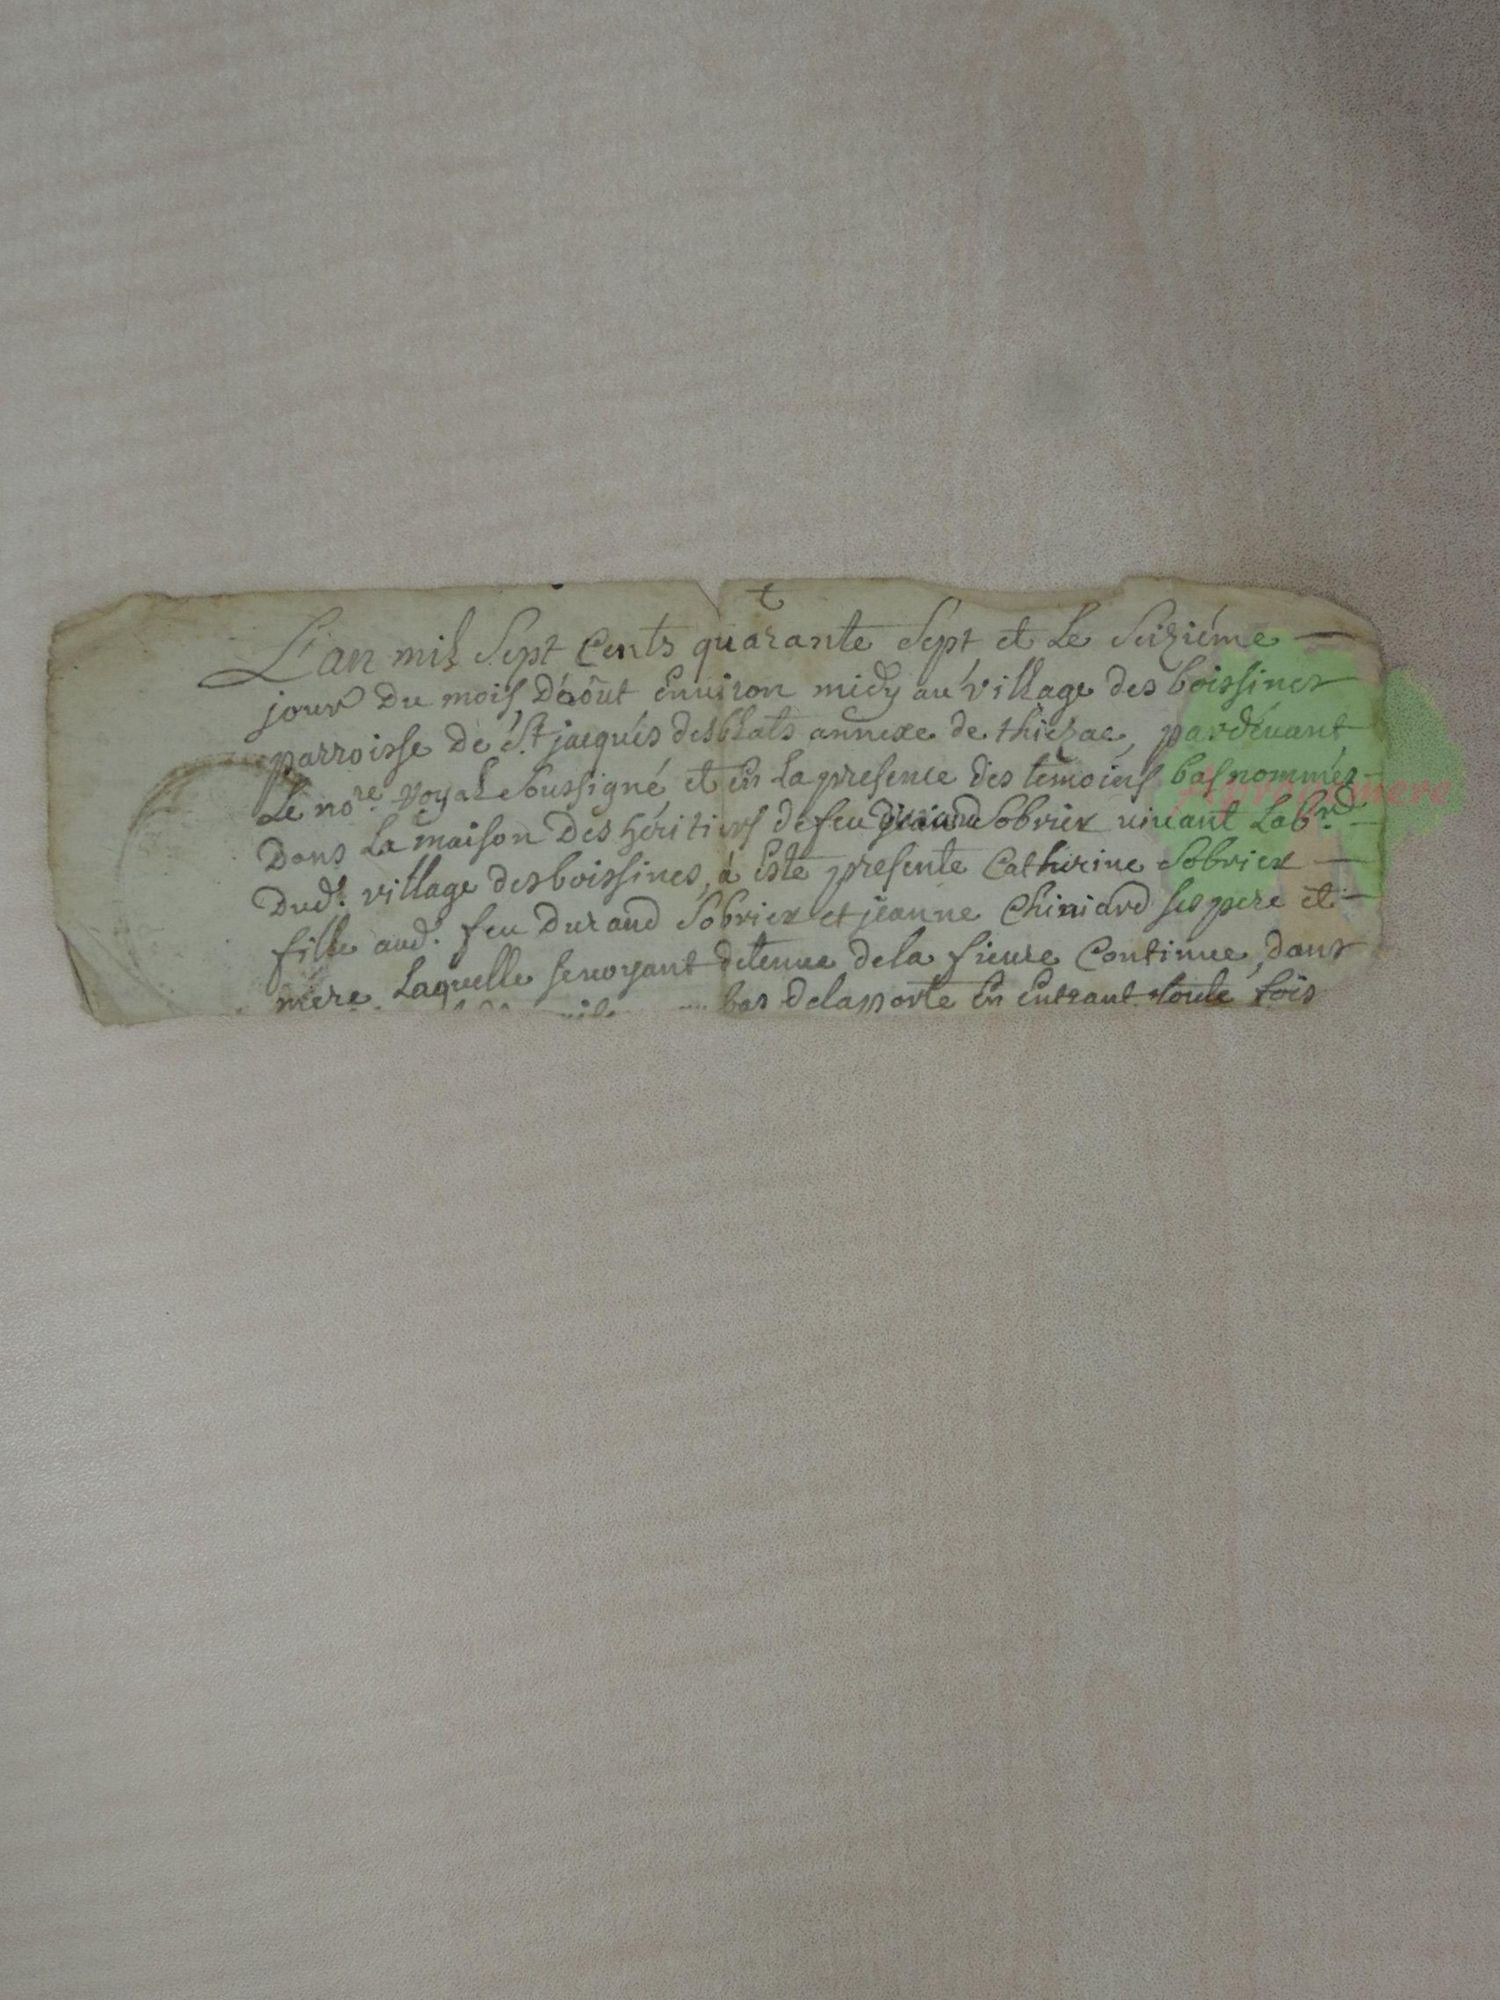 L'an mil Sept Cents quarante Sept et Le Seiziéme
jour Du mois D'août Environ midy au village des boissines
parroisse De St jacqués desblats annexe de thiezac, pardeuant
Le nore. royal soussigné et En La presence des temoins bas nommés
Dans La maison Des héritiers de feu Durand Sobrier viuant Labrd
Dud. village desboissines, à Esté presente Catherine Sobrier
fille aud. feu Durand Sobrier et jeanne Chiniard ses pere et
mere. Laquelle se voyant detenue de la fieure Continue, dans
bas delaporte En Entrant toute fois